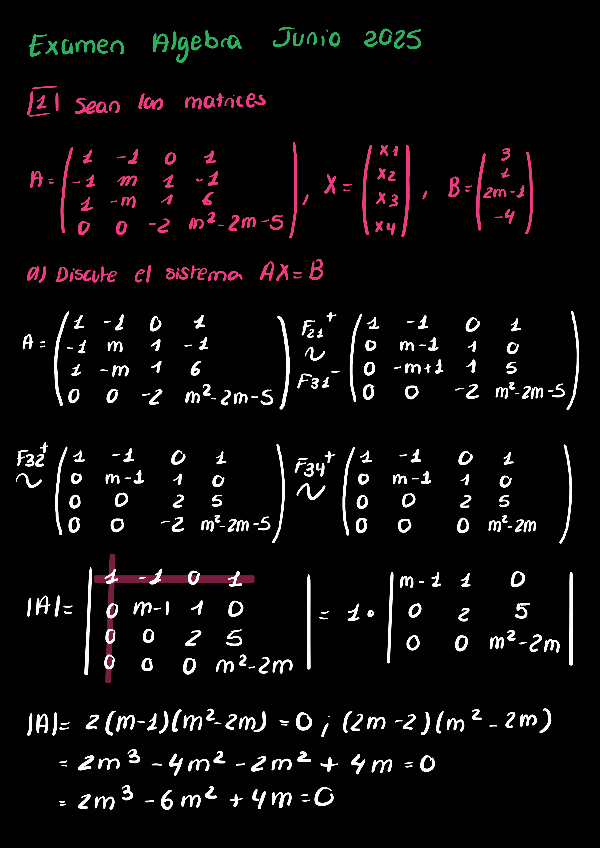 Examen Algebra Junio 2025
1 Sean las matrices
A = ( 1 -1 0 1 ; -1 m 1 -1 ; 1 -m 1 6 ; 0 0 -2 m²-2m-5 ) , X = ( x1 ; x2 ; x3 ; x4 ) , B = ( 3 ; 1 ; 2m-1 ; -4 )
a) Discute el sistema AX = B
A = ( 1 -1 0 1 ; -1 m 1 -1 ; 1 -m 1 6 ; 0 0 -2 m²-2m-5 ) F21⁺ ~ F31⁻ ( 1 -1 0 1 ; 0 m-1 1 0 ; 0 -m+1 1 5 ; 0 0 -2 m²-2m-5 )
F32⁺ ~ ( 1 -1 0 1 ; 0 m-1 1 0 ; 0 0 2 5 ; 0 0 -2 m²-2m-5 ) F34⁺ ~ ( 1 -1 0 1 ; 0 m-1 1 0 ; 0 0 2 5 ; 0 0 0 m²-2m )
|A| = | 1 -1 0 1 ; 0 m-1 1 0 ; 0 0 2 5 ; 0 0 0 m²-2m | = 1 · | m-1 1 0 ; 0 2 5 ; 0 0 m²-2m |
|A| = 2(m-1)(m²-2m) = 0 ; (2m-2)(m²-2m)
= 2m³ - 4m² - 2m² + 4m = 0
= 2m³ - 6m² + 4m = 0